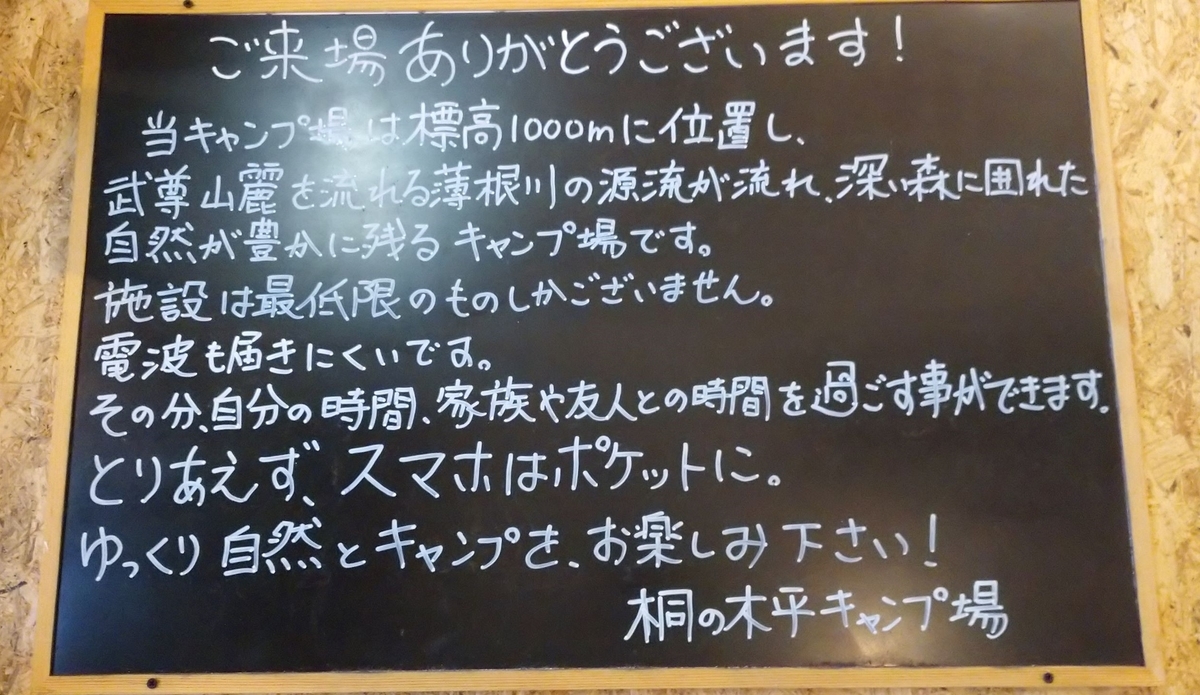 ご来場ありがとうございます！
当キャンプ場は標高1000mに位置し、
武尊山麗を流れる薄根川の源流が流れ、深い森に囲れた
自然が豊かに残るキャンプ場です。
施設は最低限のものしかございません。
電波も届きにくいです。
その分、自分の時間、家族や友人との時間を過ごす事ができます。
とりあえず、スマホはポケットに。
ゆっくり自然とキャンプを、お楽しみ下さい！
桐の木平キャンプ場